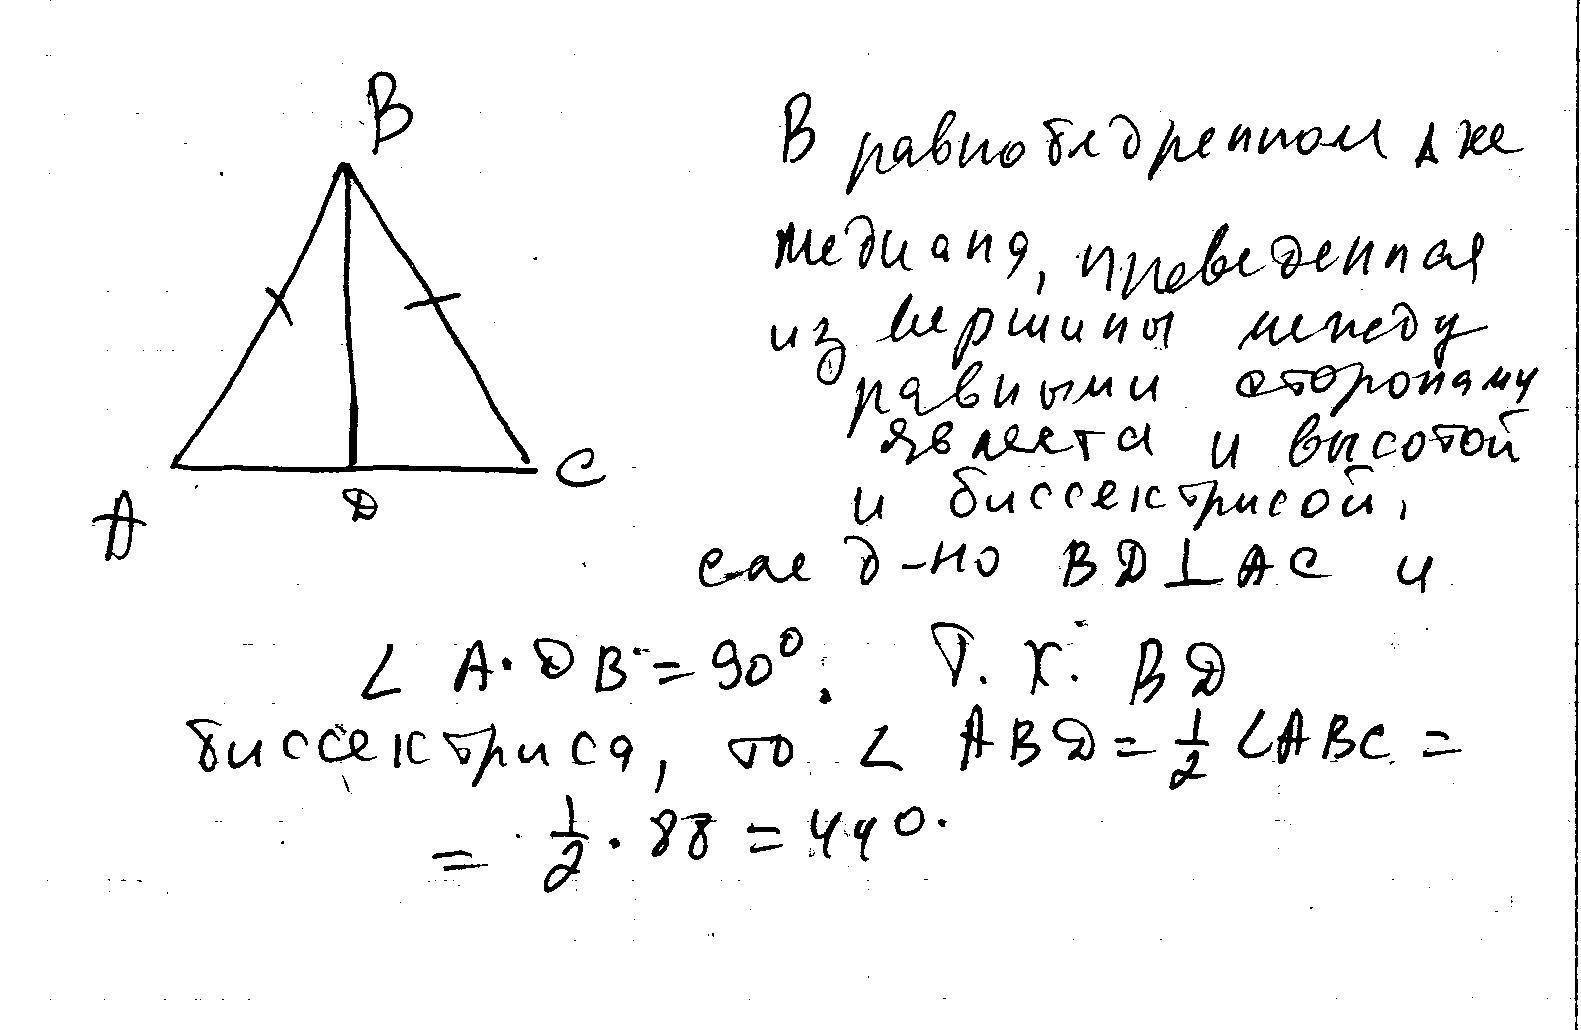 B
A
D
C
В равнобедренном Δ ке
медиана, проведенная
из вершины между
равными сторонами
явлеета и высотой
и биссектрисой,
след-но BD⊥AC и
∠ A·DB=90°. Т.к. BD
биссектриса, то ∠ ABD=½∠ABC=
= ½·88=44°.